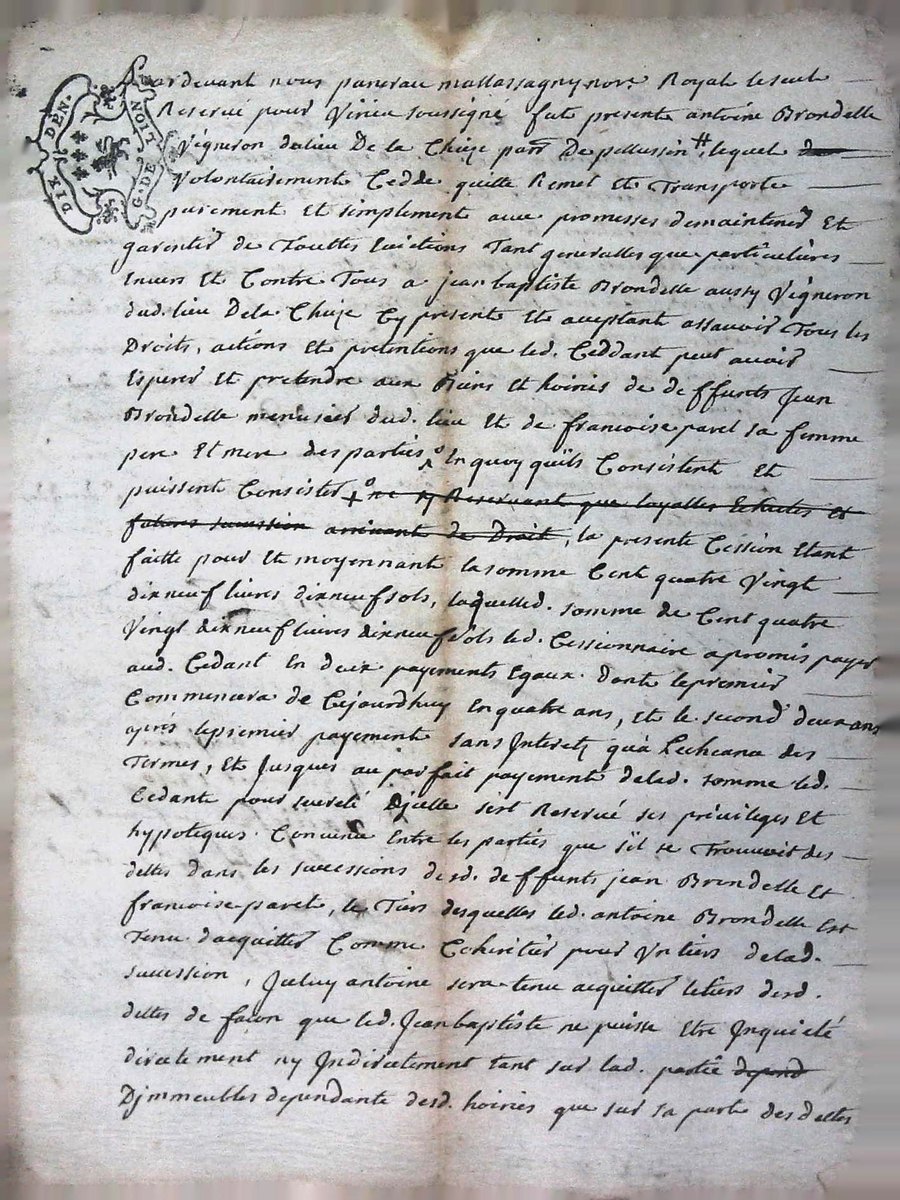 DIX DEN.
G. DE NOIT
Pardevant nous pancrau mallassagny nore. Royal le seul
Reservé pour Virieu soussigné fut presente antoine Brondelle
Vigneron du lieu De la Chieze parr. De pellussin # lequel
volontairement Cedde quitte Remet Et Transporte
purement Et simplement avec promesses de maintenir Et
garentir de Touttes Evictions Tant generalles que particulieres
Envers Et Contre Tous a jean baptiste Brondelle aussy Vigneron
dud. lieu De la Chieze Cy presente Et acceptant assavoir Tous les
Droits, actions Et pretentions que led. Ceddant peut avoir
Esperer Et pretendre aux Biens Et hoiries de deffunts Jean
Brondelle menusier dud. lieu Et de francoise paret sa femme
pere Et mere des parties, En quoy quils Consistent Et
puissent Consister ne sy Reservant que loyalles Echuttes Et
futures sucession arrivant de Droit, la presente Cession Etant
faitte pour Et moyennant la somme Cent quatre Vingt
dixneuf livres dixneuf sols, laquelled. somme de Cent quatre
Vingt dixneuf livres dixneuf sols led. Cessionnaire a promis payer
aud. Cedant En deux payements Egaux. dont le premier
Commencera de Cejourdhuy En quatre ans, Et le second deux ans
apres le premier payement sans Interets qua Lecheana des
Termes, Et Jusques au parfait payement delad. somme led.
Cedante pour sureté Djcelle sest Reservé ses privileges Et
hypoteques. Convenu Entre les parties que sil se Trouvoit des
dettes dans les sucessions desd. deffunts jean Brondelle Et
francoise paret, le Tiers desquelles led. antoine Brondelle Est
Tenu dacquitter Comme Coheritier pour Vn tiers delad.
sucession, Jceluy antoine sera tenu acquitter letiers desd.
dettes de facon que led. Jean baptiste ne puisse Etre Inquieté
directement ny Indirectement tant sur lad. partie depend
Djmmeubles dependante desd. hoiries que sur sa parte des dettes